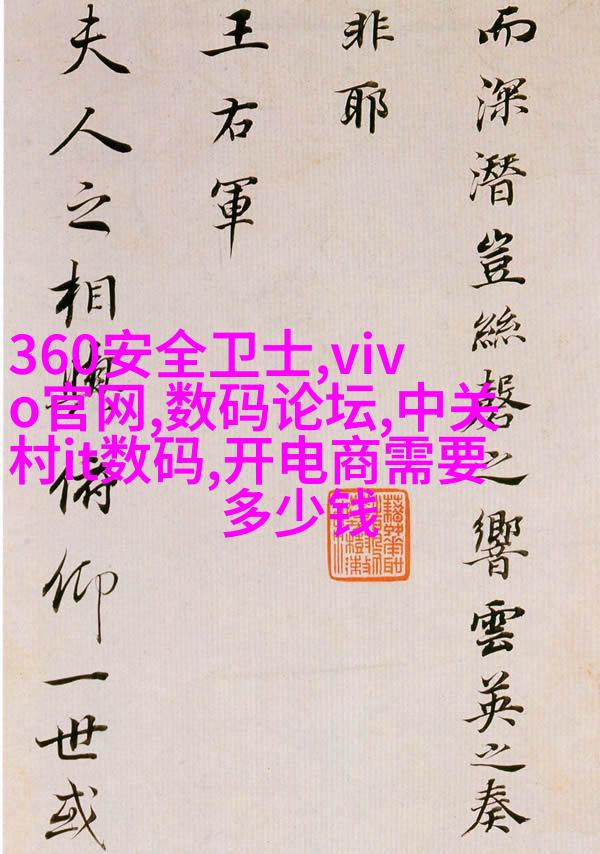 而深潛豈絲磬之響雲英之奏
非耶
王右軍
夫人之相與俯仰一世或
360安全卫士,viv
o官网,数码论坛,中关
村it数码,开电商需要
多少钱